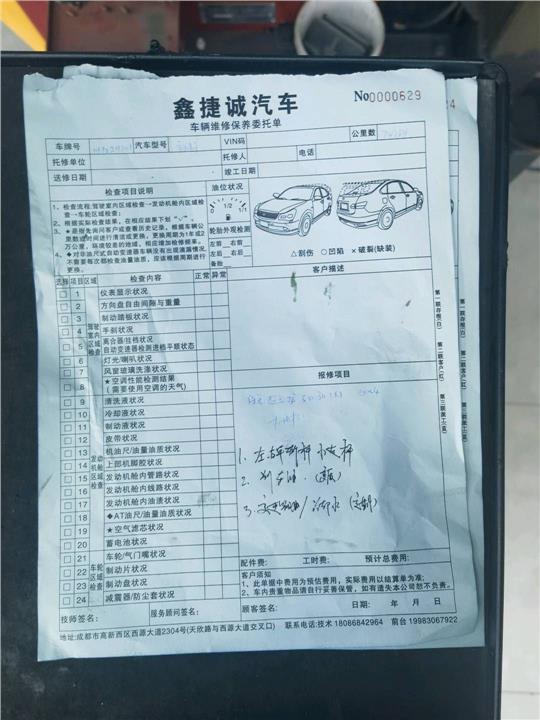 鑫捷诚汽车
No0000629
车辆维修保养委托单
车牌号 汽车型号 VIN码 公里数
托修单位 托修人 电话
送修日期 竣工日期
检查项目说明
1、检查流程:驾驶室内区域检查→发动机舱内区域检
查→车轮区域检查;
2、根据实际检查结果,在相应结果下划 “√”。
3、★是指先询问客户或查看历史记录,根据车辆公
里数或时间进行清洁或更换,更换周期为1年或2
万公里,环境较差的地域,相应增加检修频率。
4、◆对非油尺式自动变速器车辆没有出现渗漏情况,
不需要每次都检查油量油质,应该根据周期进行
更换。
油位状况
0 1/2 1/1
轮胎外观检测
左前 右前
左后 右后
备胎
△割伤 ○凹陷 ×破裂(缺装)
选择 项目 区域 检查内容 正常 异常
客户描述
1 仪表显示状况
2 方向盘自由间隙与重量
3 制动踏板状况
4 手刹状况
5 离合器/挂档状况
自动变速器检测进档平顺状态
6 灯光/喇叭状况
7 风窗玻璃洗涤状况
8 ★空调性能检测结果
(需要使用空调的天气)
驾驶室内区域检查
9 清洗液状况
10 冷却液状况
11 制动液状况
12 皮带状况
13 机油尺/油量油质状况
14 上部机脚胶状况
15 发动机舱内管路状况
16 发动机舱内线路状况
17 发动机舱内油渍状况
18 ◆AT油尺/油量油质状况
19 ★空气滤芯状况
20 蓄电池状况
发动机舱区域检查
21 车轮/气门嘴状况
22 制动片状况
23 制动盘状况
24 减震器/防尘套状况
车轮区域检查
报修项目
1.
2.
3.
第一联存根(白)
第二联客户(红)
第三联技工(蓝)
配件费: 工时费: 预计总费用:
客户须知
1、此单据中费用为预估费用,实际费用以结算单为准;
2、车内贵重物品请自行妥善保管,如有遗失本公司恕不负责。
技师签名: 服务顾问签名: 顾客签名: 日期: 年 月 日
地址:成都市高新西区西源大道2304号(天欣路与西源大道交叉口) 联系电话:技术 18086842964 前台 19983067922